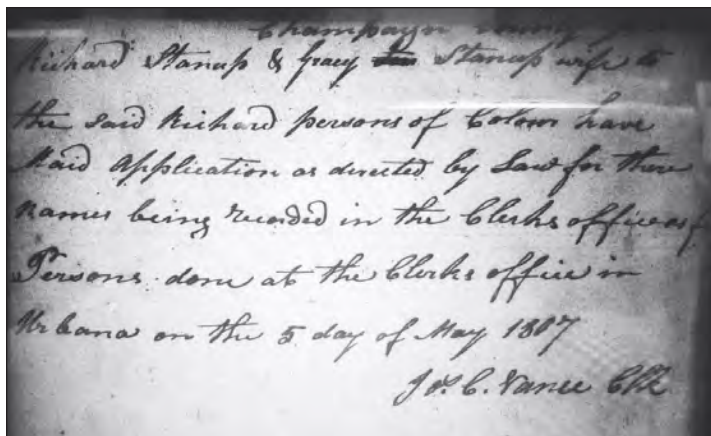 Champayn County
Richard Stanup & Gracy Stanup wife to
the said Richard persons of Colour have
Maid Application as directed by Law for there
names being recorded in the Clerks office as f
Persons done at the Clerks office in
Urbana on the 5 day of May 1807
Jos. C. Vance Clk